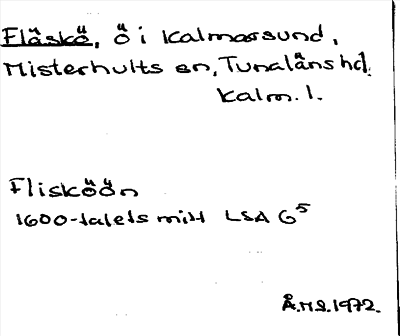 Fläskö, ö i Kalmarsund,
Misterhults sn, Tunaläns hd.
Kalm. l.
Fliskŏön
1600-talets mitt LSA G5
Å.M.S. 1972.